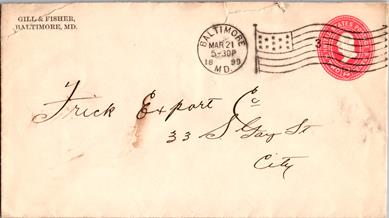 GILL & FISHER,
BALTIMORE, MD.
BALTIMORE
MAR 21
5-30P
1899
MD.
3
Frick Export Co
33 S Gay St
City